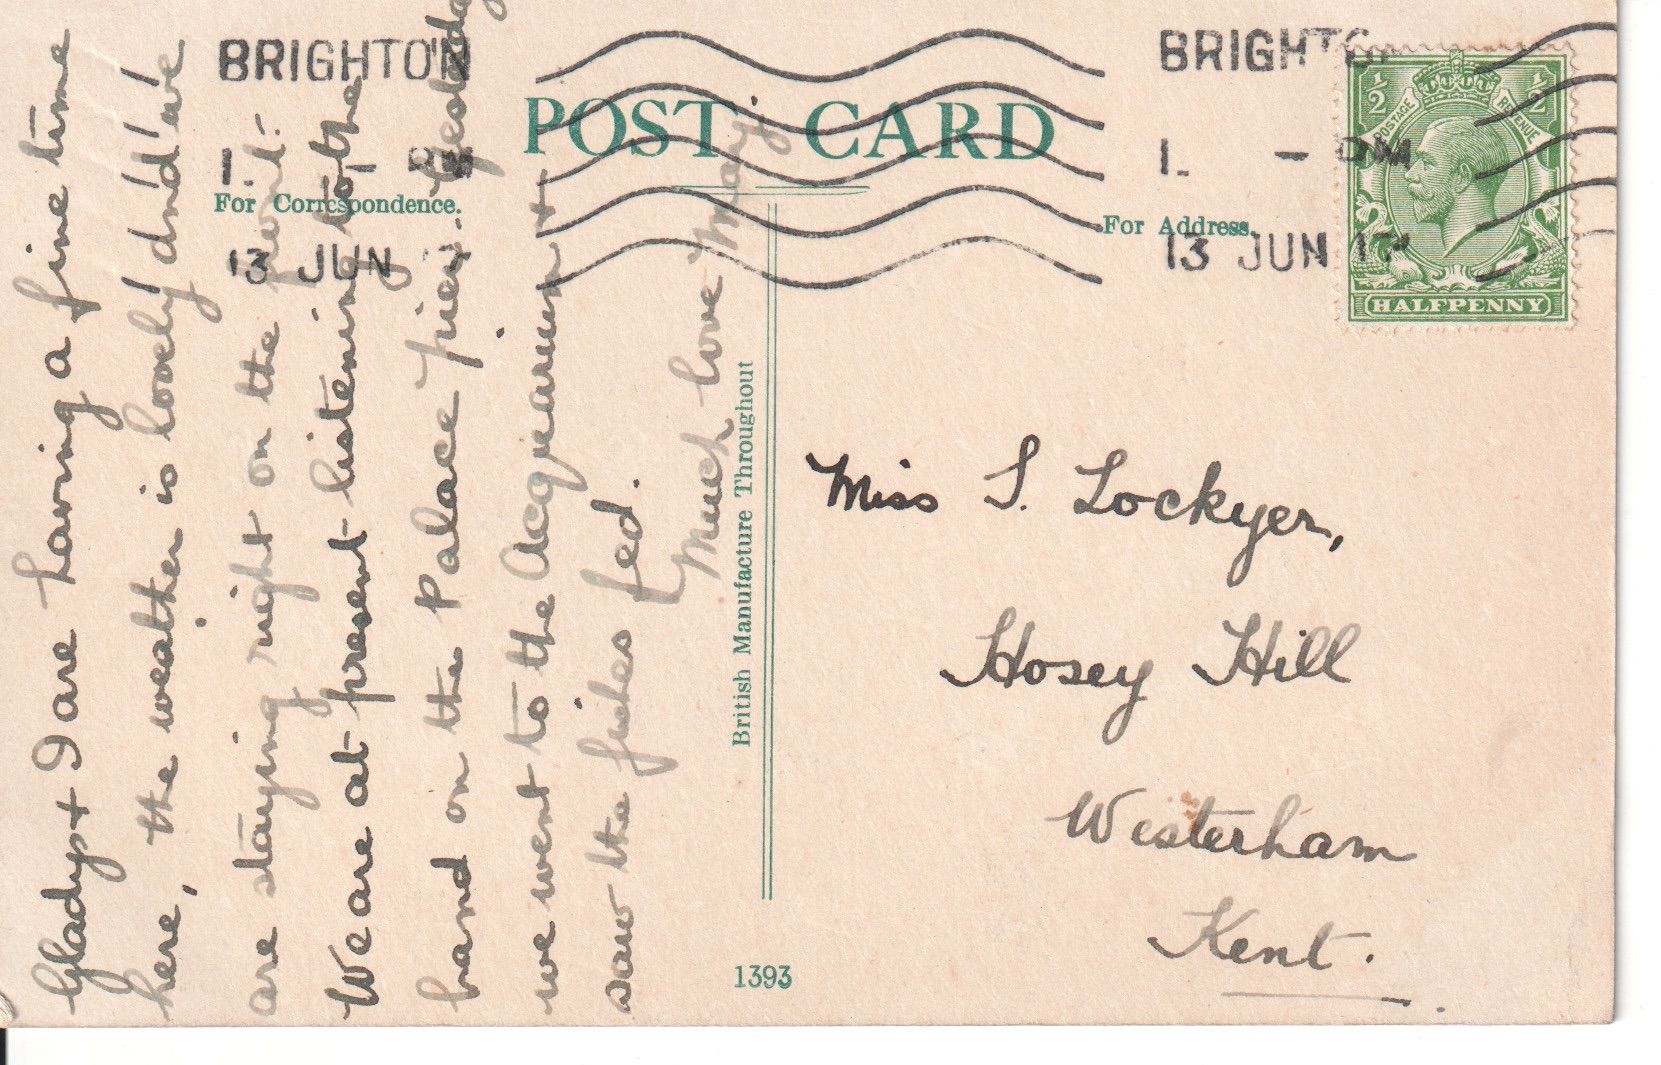 BRIGHTON
1. - PM
13 JUN
POST CARD
BRIGHTO
1. - PM
13 JUN 17
½ ½
POSTAGE REVENUE
HALFPENNY
For Correspondence.
For Address.
Gladys + I are having a fine time
here, the weather is lovely and we
are staying right on the front.
We are at present listening to the
band on the Palace pier. Yesterday
we went to the Acquarium +
saw the fishes fed.
Much love May.
British Manufacture Throughout
1393
Miss S. Lockyer,
Hosey Hill
Westerham
Kent.